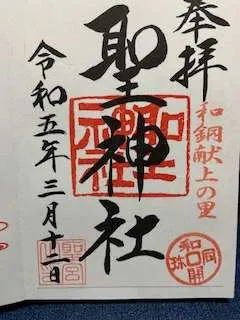 奉拝
和銅献上の里
聖神社
令和五年三月十二日
和同開珎